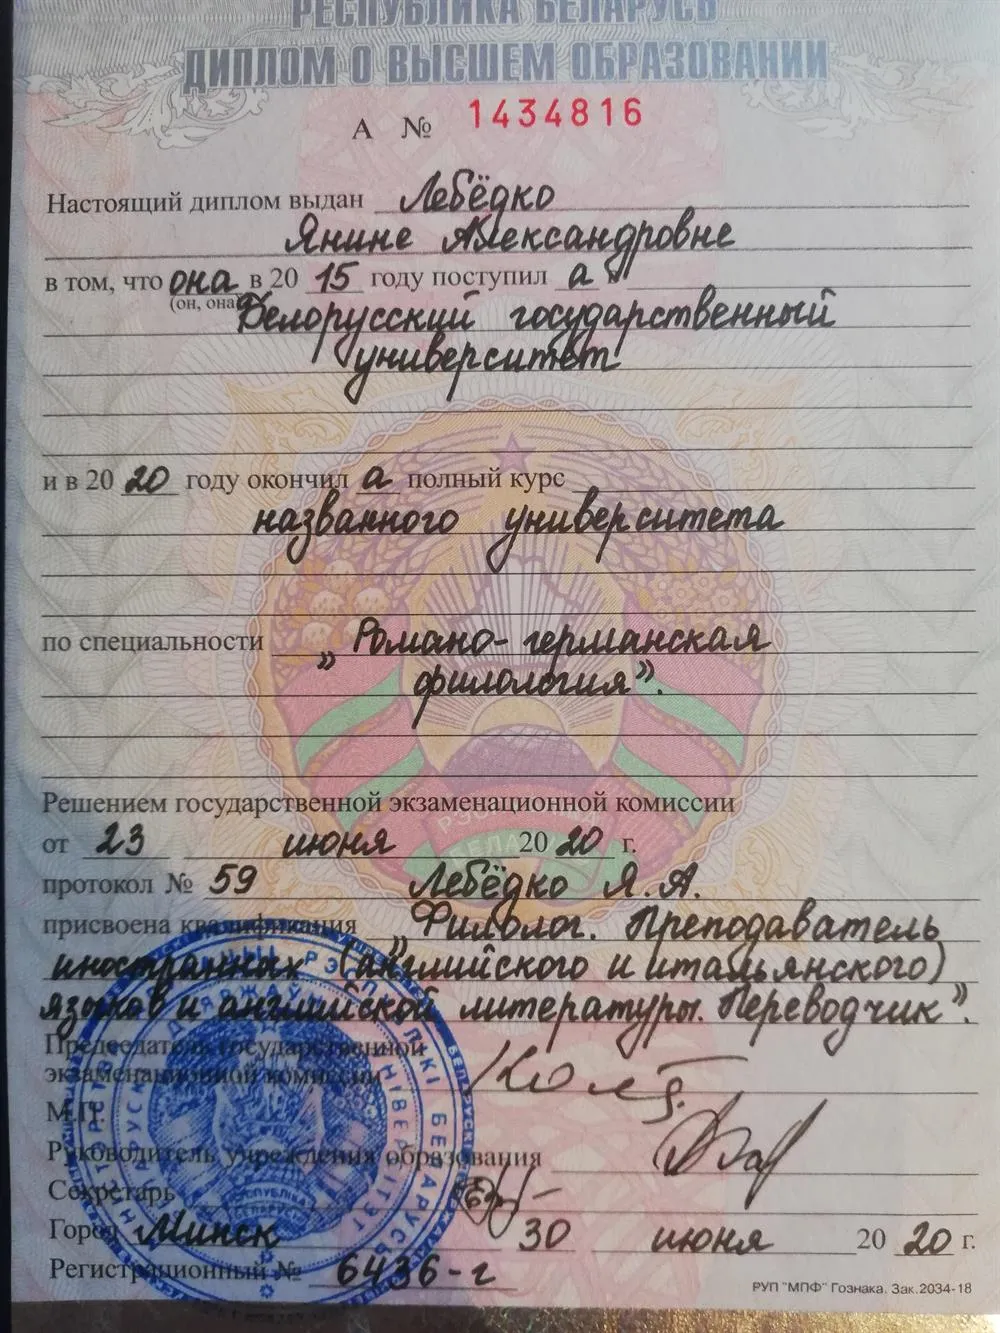 РЕСПУБЛИКА БЕЛАРУСЬ
ДИПЛОМ О ВЫСШЕМ ОБРАЗОВАНИИ
А № 1434816
Настоящий диплом выдан Лебёдко
Янине Александровне
в том, что она в 20 15 году поступил а в
(он, она)
Белорусский государственный
университет
и в 20 20 году окончил а полный курс
названного университета
по специальности „Романо-германская
филология”.
Решением государственной экзаменационной комиссии
от 23 июня 20 20 г.
протокол № 59 Лебёдко Я. А.
присвоена квалификация „Филолог. Преподаватель
иностранных (английского и итальянского)
языков и английской литературы. Переводчик”.
Председатель государственной
экзаменационной комиссии
М.П.
Руководитель учреждения образования
Секретарь
Город Минск 30 июня 20 20 г.
Регистрационный № 6436-г
РУП "МПФ" Гознака. Зак.2034-18